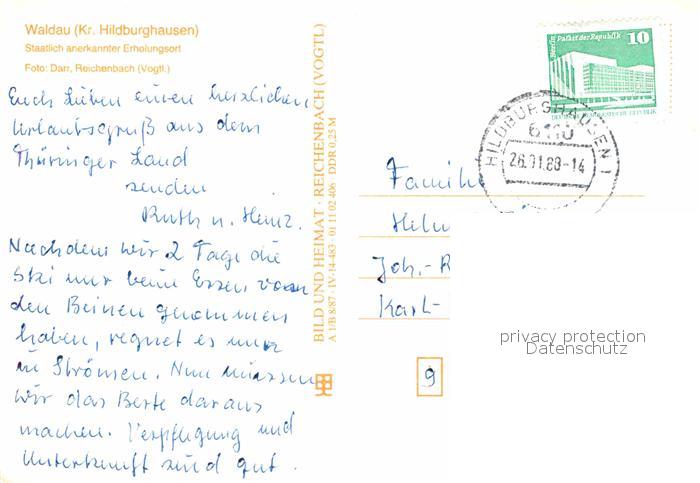 Waldau (Kr. Hildburghausen)
Staatlich anerkannter Erholungsort
Foto: Darr, Reichenbach (Vogtl.)
Euch Lieben einen herzlichen
Urlaubsgruß aus dem
Thüringer Land
senden
Ruth u. Heinz.
Nachdem wir 2 Tage die
Ski nur beim Essen von
den Beinen genommen
haben, regnet es nun
in Strömen. Nun müssen
wir das Beste daraus
machen. Verpflegung und
Unterkunft sind gut.
BILD UND HEIMAT · REICHENBACH (VOGTL)
A 1/B 8/87 · IV-14-483 · 01 11 02 406 DDR 0,25 M
Berlin Palast der Republik 10
DEUTSCHE DEMOKRATISCHE REPUBLIK
HILDBURGHAUSEN 1
6110
26.01.88-14
Familie
Joh.-R
Karl-
9
privacy protection
Datenschutz